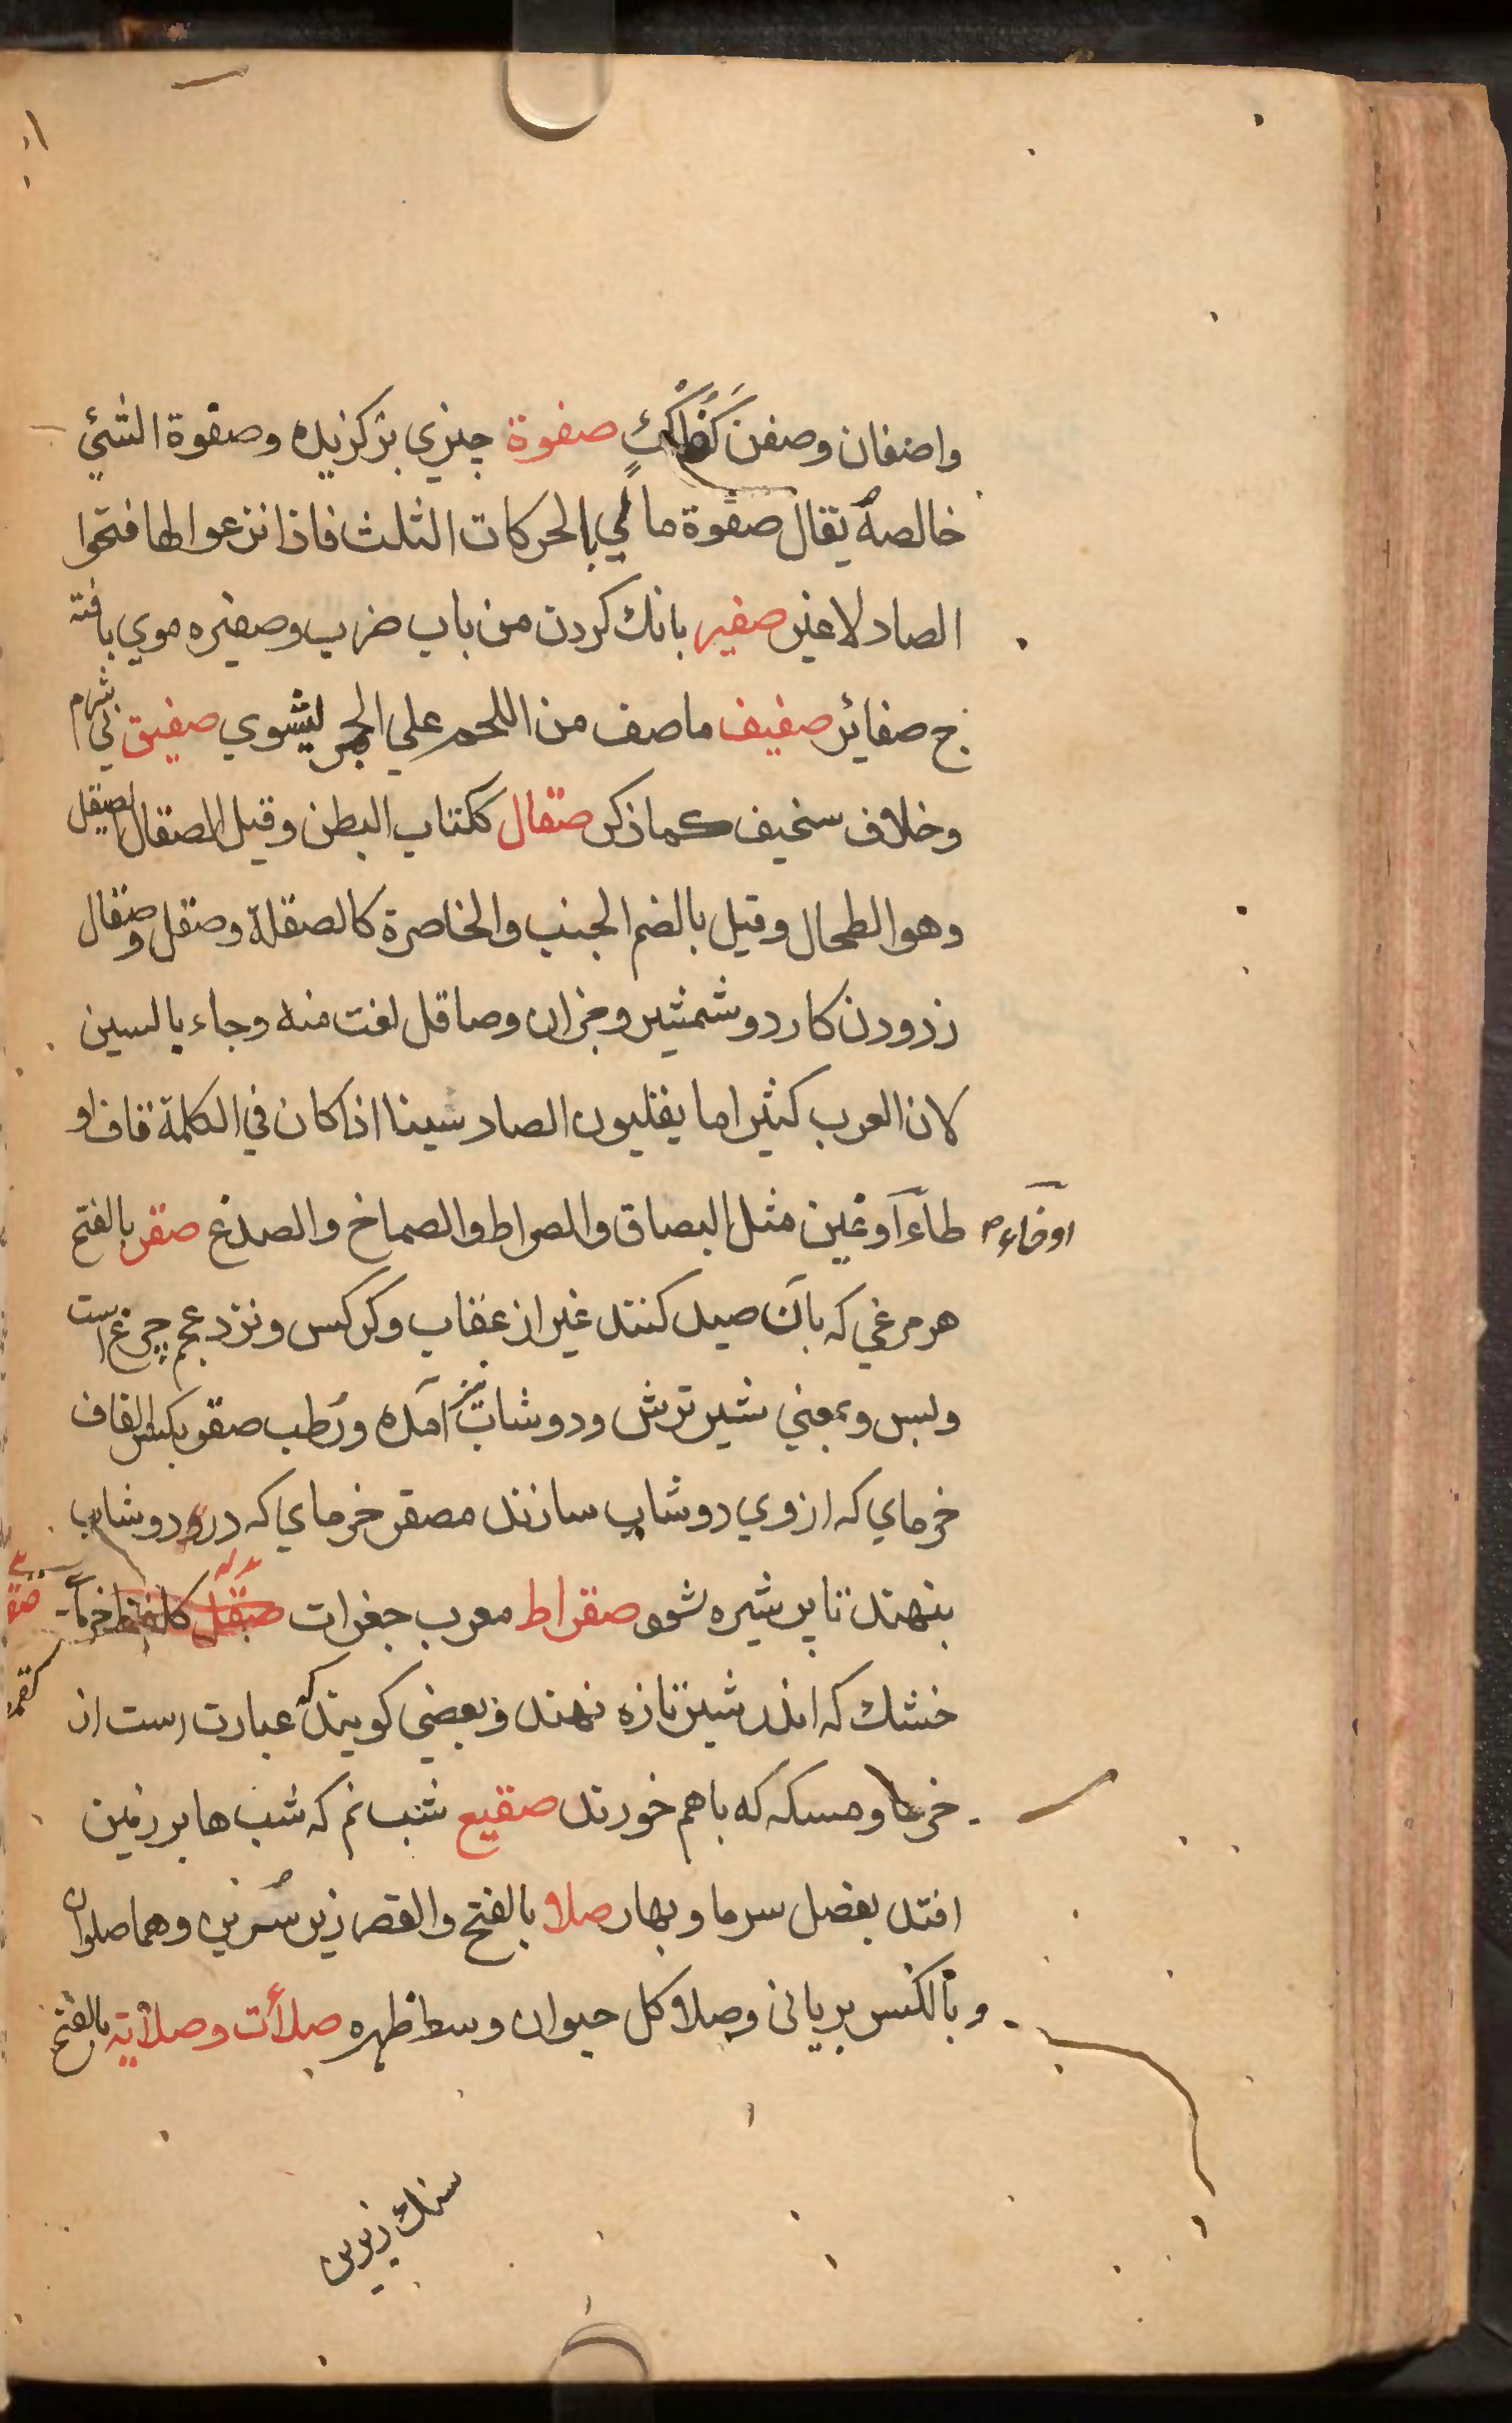 واصفان وصفن صفوة چیزي برکزیده وصفوة الشئ
خالصه یقال صفوة مالي بالحرکات الثلث فاذا نزعوا الها فتحوا
الصاد لاغیر صفیر بانك کردن من باب ضرب وصفیره موي بافته
ج صفائر صفیف ماصف من اللحم علي الجمر لیشوي صفیق بي شرم
وخلاف سخیف کماذکر صقال ککتاب البطن وقیل الصقال الصیقل
وهوالطحال وقیل بالضم الجنب والخاصرة کالصقلة وصقل وصقال
زدودن کارد وشمشیر وجزان وصاقل لغت منه وجاء بالسین
لان العرب کثیرا ما یقلبون الصاد سینا اذا کان في الکلمة قاف او
طاء اوغین مثل البصاق والصراط والصماخ والصدغ صقر بالفتح
اوخاء صح
هرمرغي که بآن صید کنند غیر از عقاب وکرکس ونزد عجم چرغ است
ولبس وبمعني شیر ترش ودوشاب نیز آمده ورُطب صقر بکسر القاف
خرماي که ازوي دوشاب سازند مصقر خرماي که درو دوشاب
بنهند تا پر شیره شود صقراط معرب جغرات صقل خرمآ
خشك که اندر شیر تازه نهند وبعضي کویند که عبارت است از
خرما ومسکه که باهم خورند صقیع شب نم که شب ها بر زمین
افتد بفصل سرما وبهار صلا بالفتح والقصر زیر سُرین وهما صلوان
وبالکسر بریانی وصلا کل حیوان وسط ظهره صلأت وصلأیه بالفتح
سنك زیرین